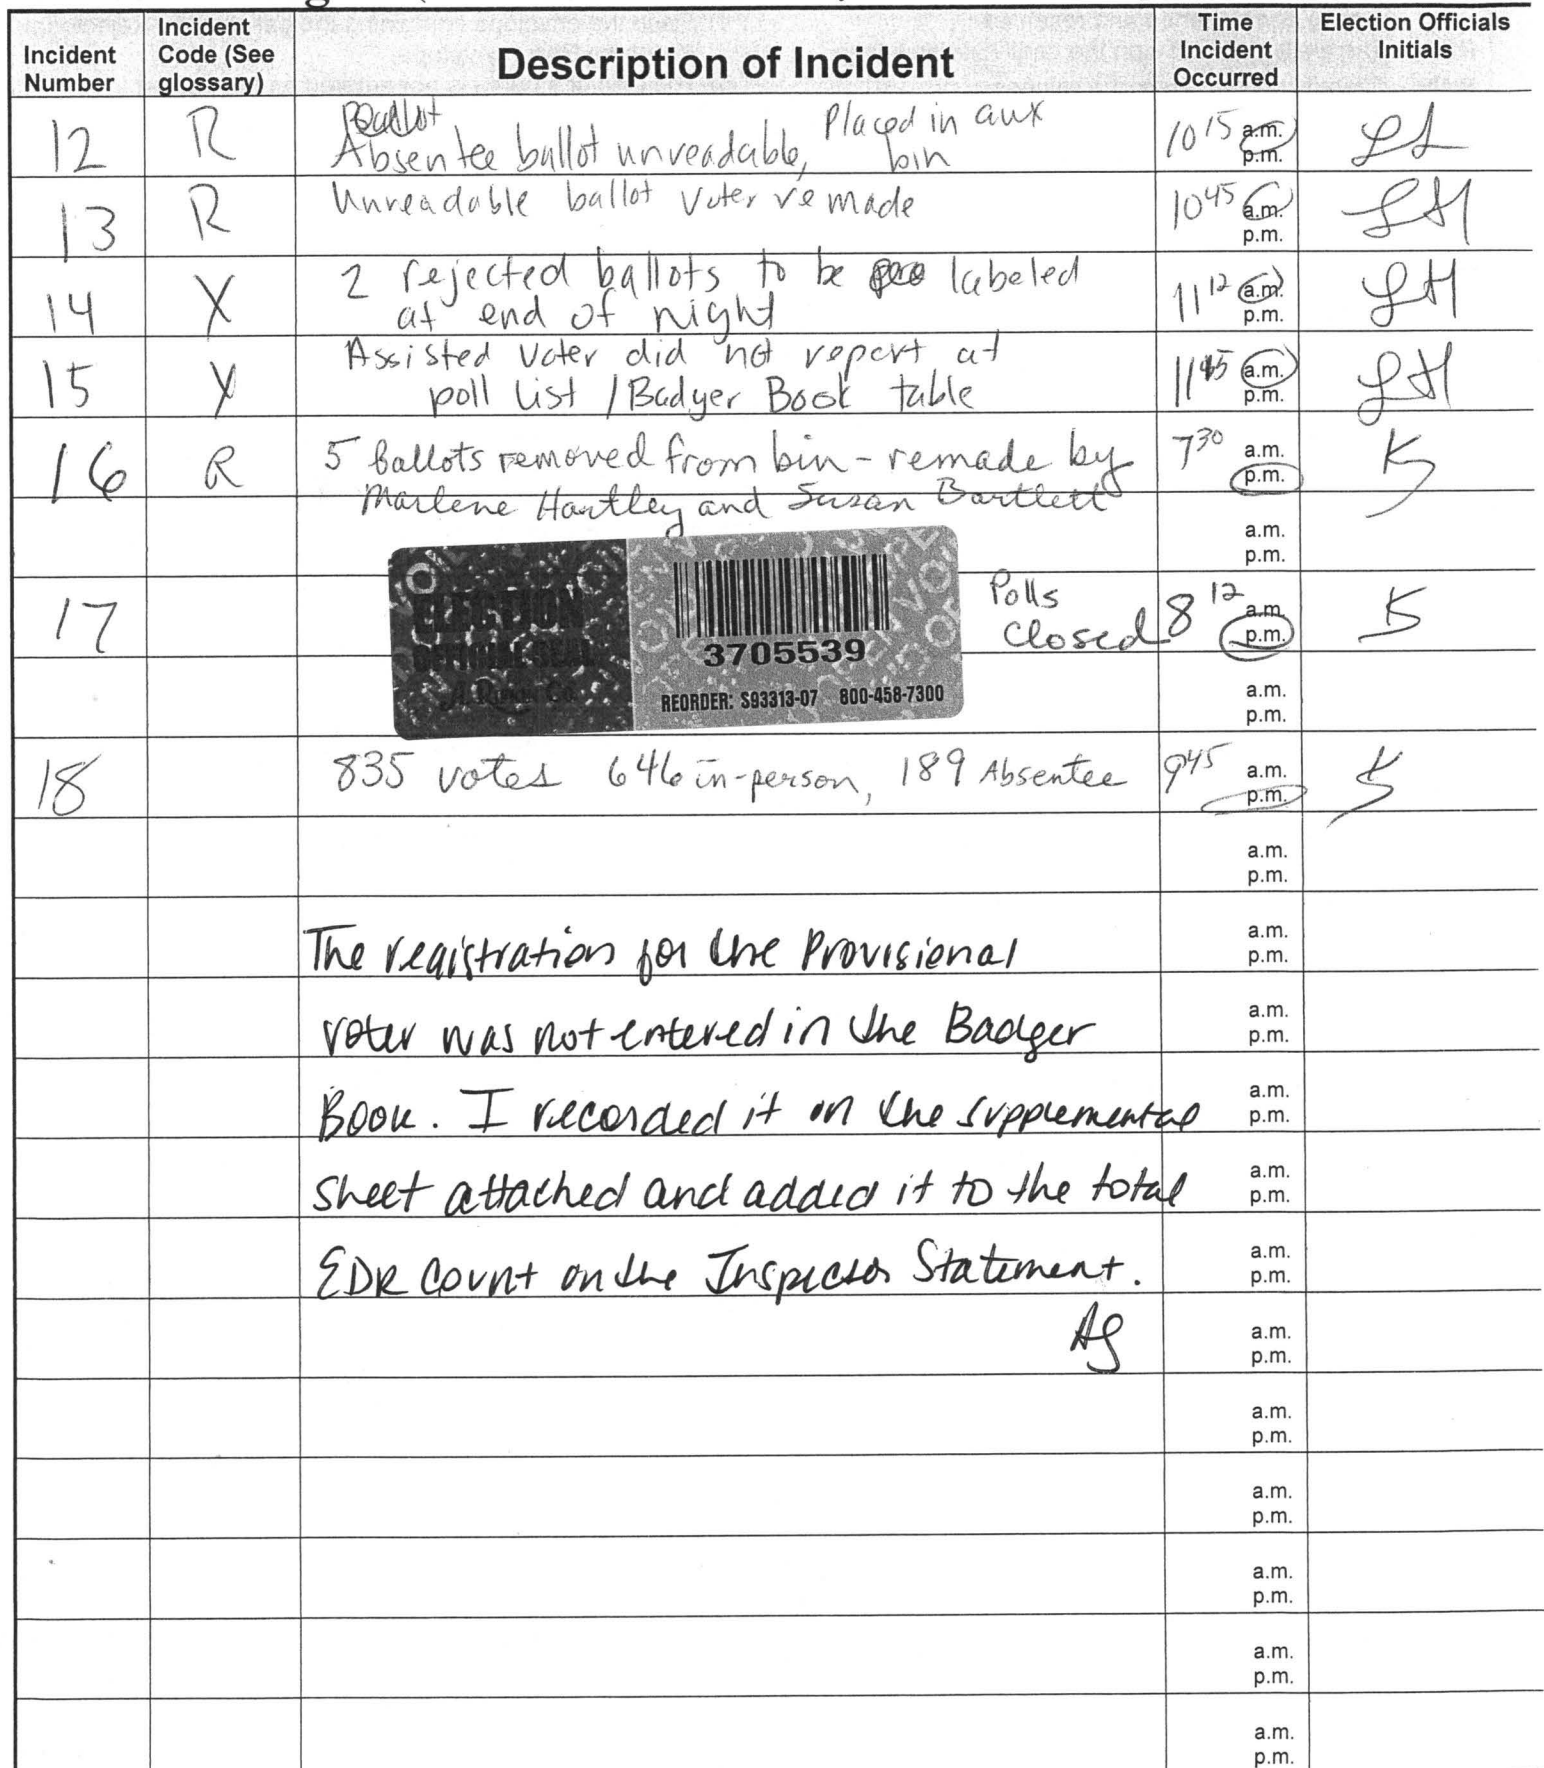 Incident Number
Incident Code (See glossary)
Description of Incident
Time Incident Occurred
Election Officials Initials
12 R Absentee ballot unreadable, Placed in aux bin 10 15 a.m. p.m.
13 R Unreadable ballot voter remade 10 45 a.m. p.m. LH
14 X 2 rejected ballots to be labeled
at end of night 11 12 a.m. p.m. LH
15 Y Assisted voter did not report at
poll list / Badger Book table 11 45 a.m. p.m. LH
16 R 5 ballots removed from bin - remade by 7 30 a.m. p.m.
Marlene Hartley and Susan Bartlett
a.m.
p.m.
17 Polls closed 8 12 a.m. p.m.
ELECTION
OFFICIAL SEAL
A. Rifkin Co.
3705539
REORDER: S93313-07 800-458-7300
a.m.
p.m.
18 835 votes 646 in-person, 189 Absentee 9 45 a.m. p.m.
a.m.
p.m.
The registration for the Provisional a.m. p.m.
voter was not entered in the Badger a.m. p.m.
Book. I recorded it on the supplemental a.m. p.m.
sheet attached and added it to the total a.m. p.m.
EDR count on the Inspector Statement. a.m. p.m.
AG a.m. p.m.
a.m.
p.m.
a.m.
p.m.
a.m.
p.m.
a.m.
p.m.
a.m.
p.m.